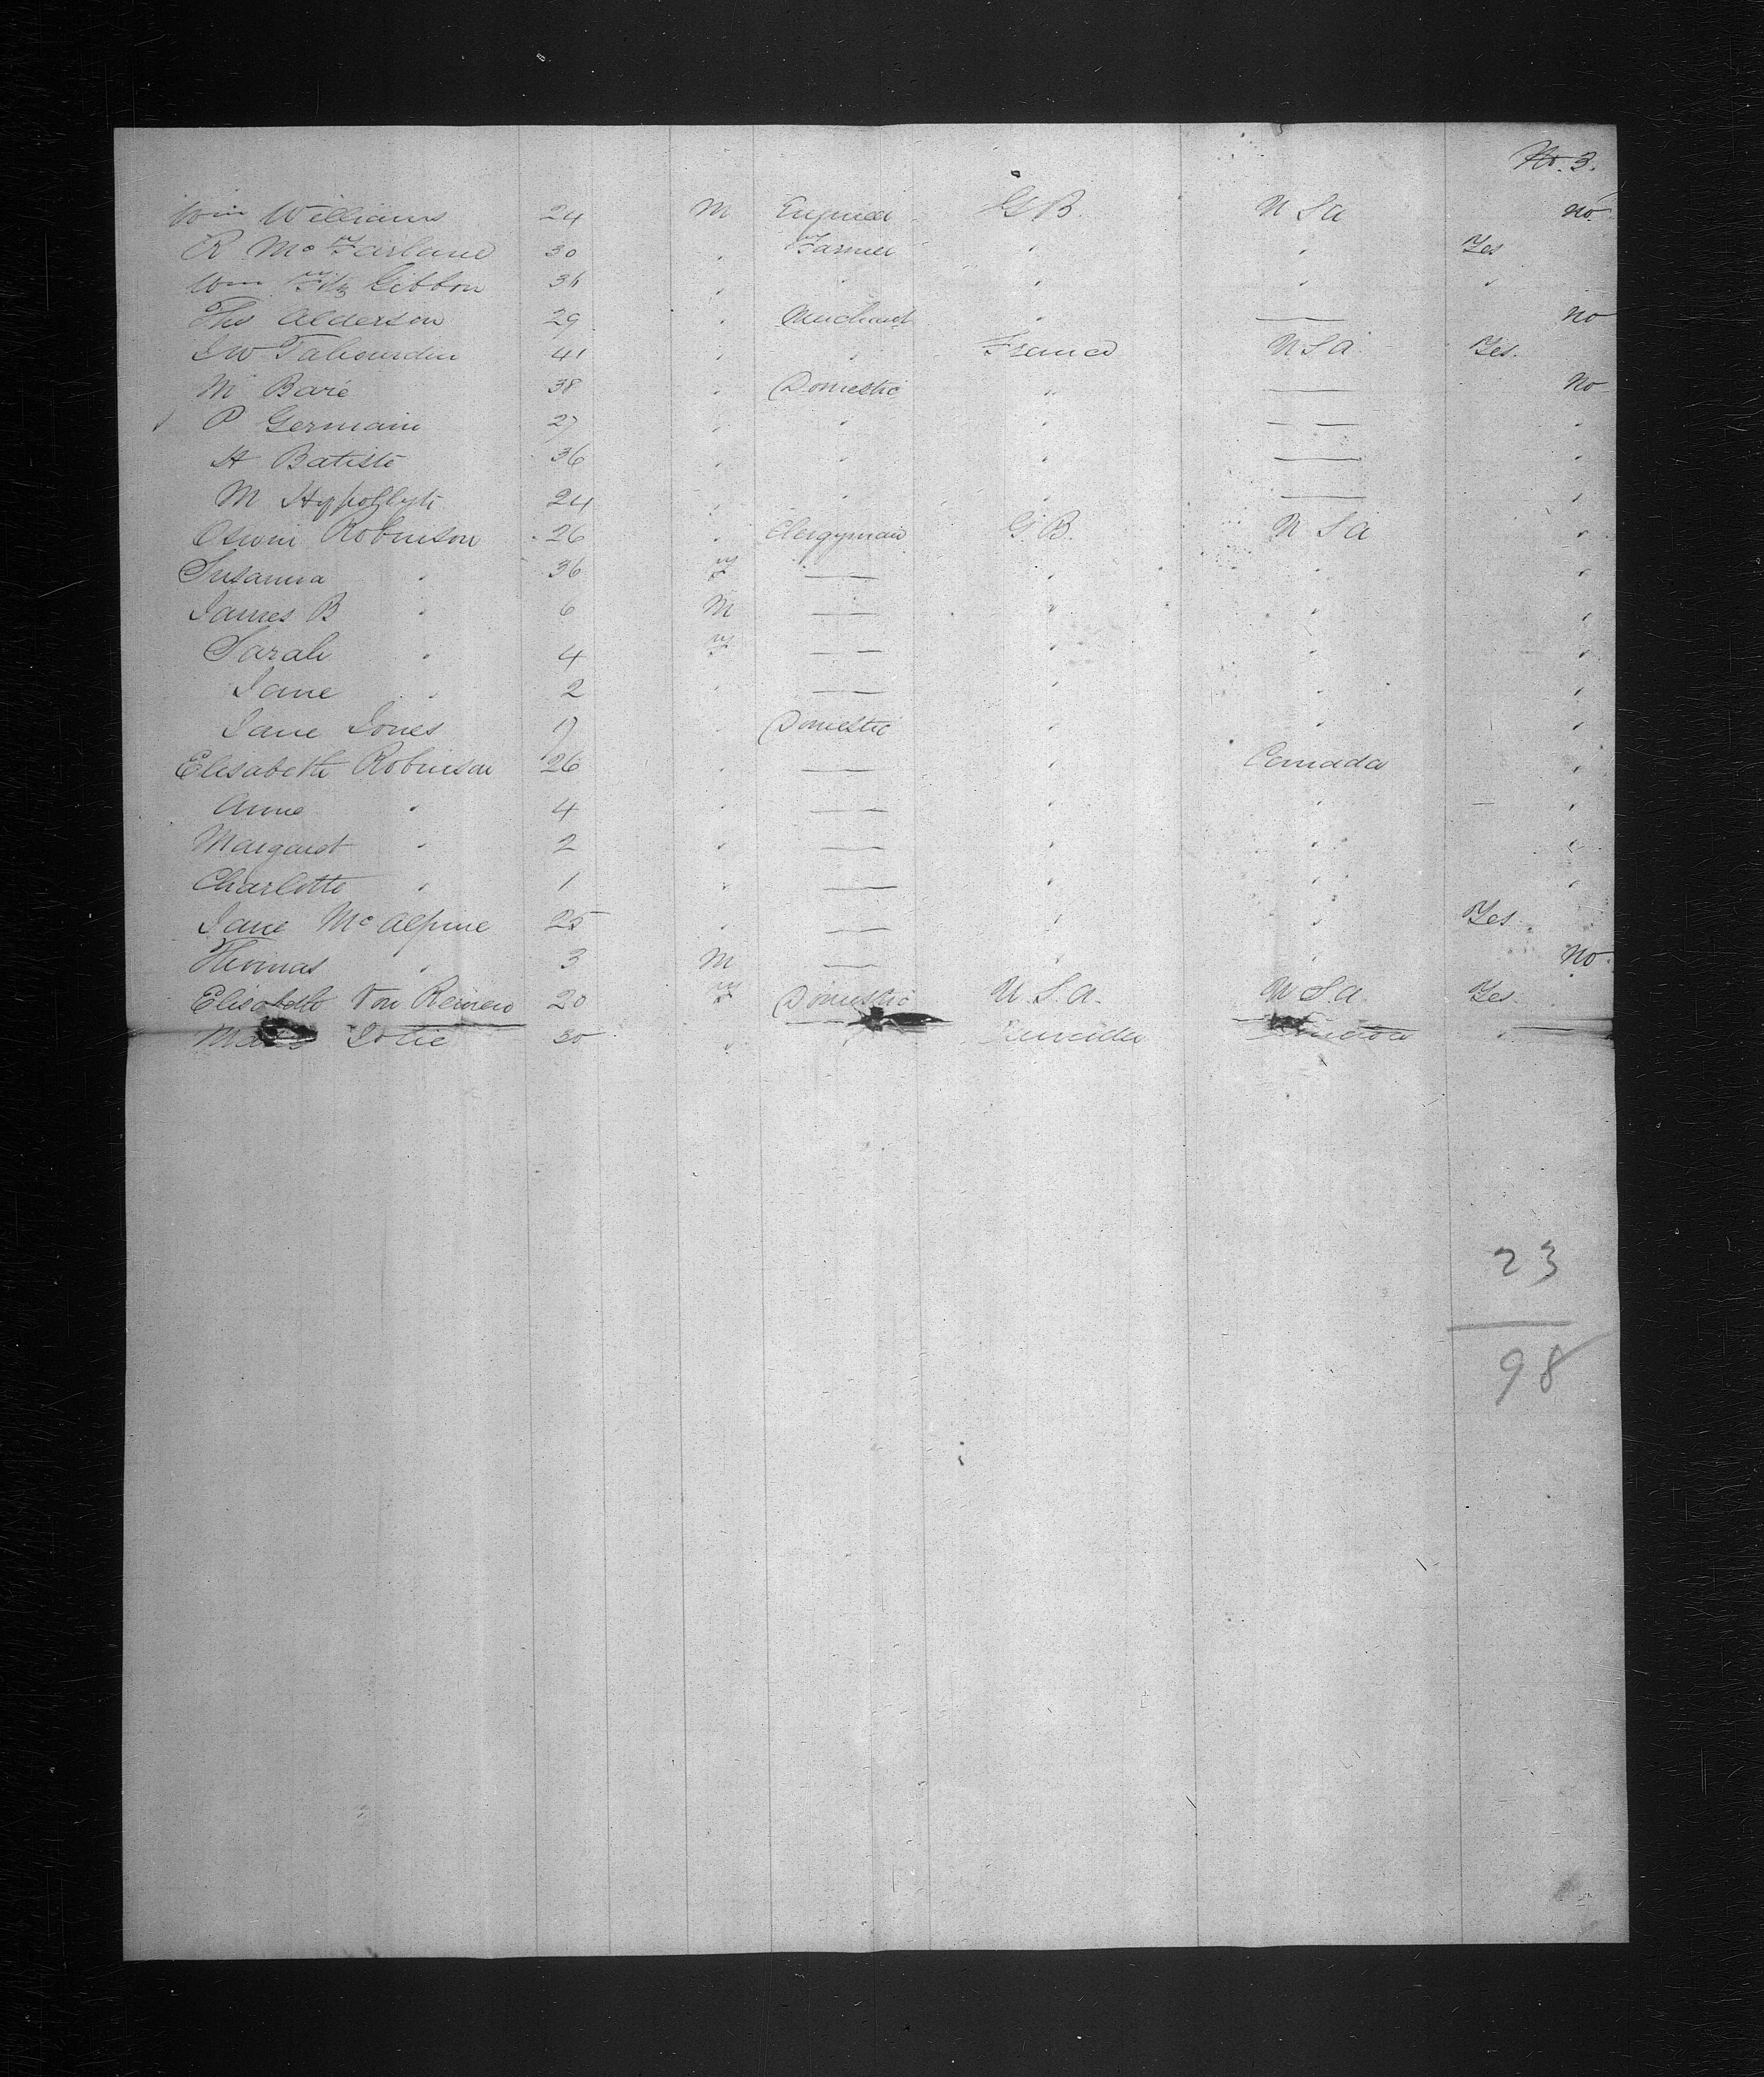 No. 3.
Wm Williams 24 M Engineer G B. U S A no
R McFarland 30 " Farmer " " Yes
Wm Fitz Gibbon 36 " " " " "
Thos Alderson 29 " Merchant " — No
J W Tabourdin 41 " " France U S A Yes.
M Barié 38 " Domestic " — No
P Germain 27 " " " — "
H Batiste 36 " " " — "
M Hyppolyte 24 " " " — "
Oswin Robinson 26 " Clergyman G. B. U S A "
Susanna " 36 F — " " "
James B " 6 M — " " "
Sarah " 4 F — " " "
Jane " 2 " — " " "
Jane Jones 17 " Domestic " " "
Elisabeth Robinson 26 " — " Canada "
Anne " 4 " — " " "
Margaret " 2 " — " " "
Charlotte " 1 " — " " "
Jane McAlpine 25 " — " " Yes.
Thomas " 3 M — " " No.
Elisabeth Van 20 F Domestic U. S. A. U S A Yes.
30 " "
23
98